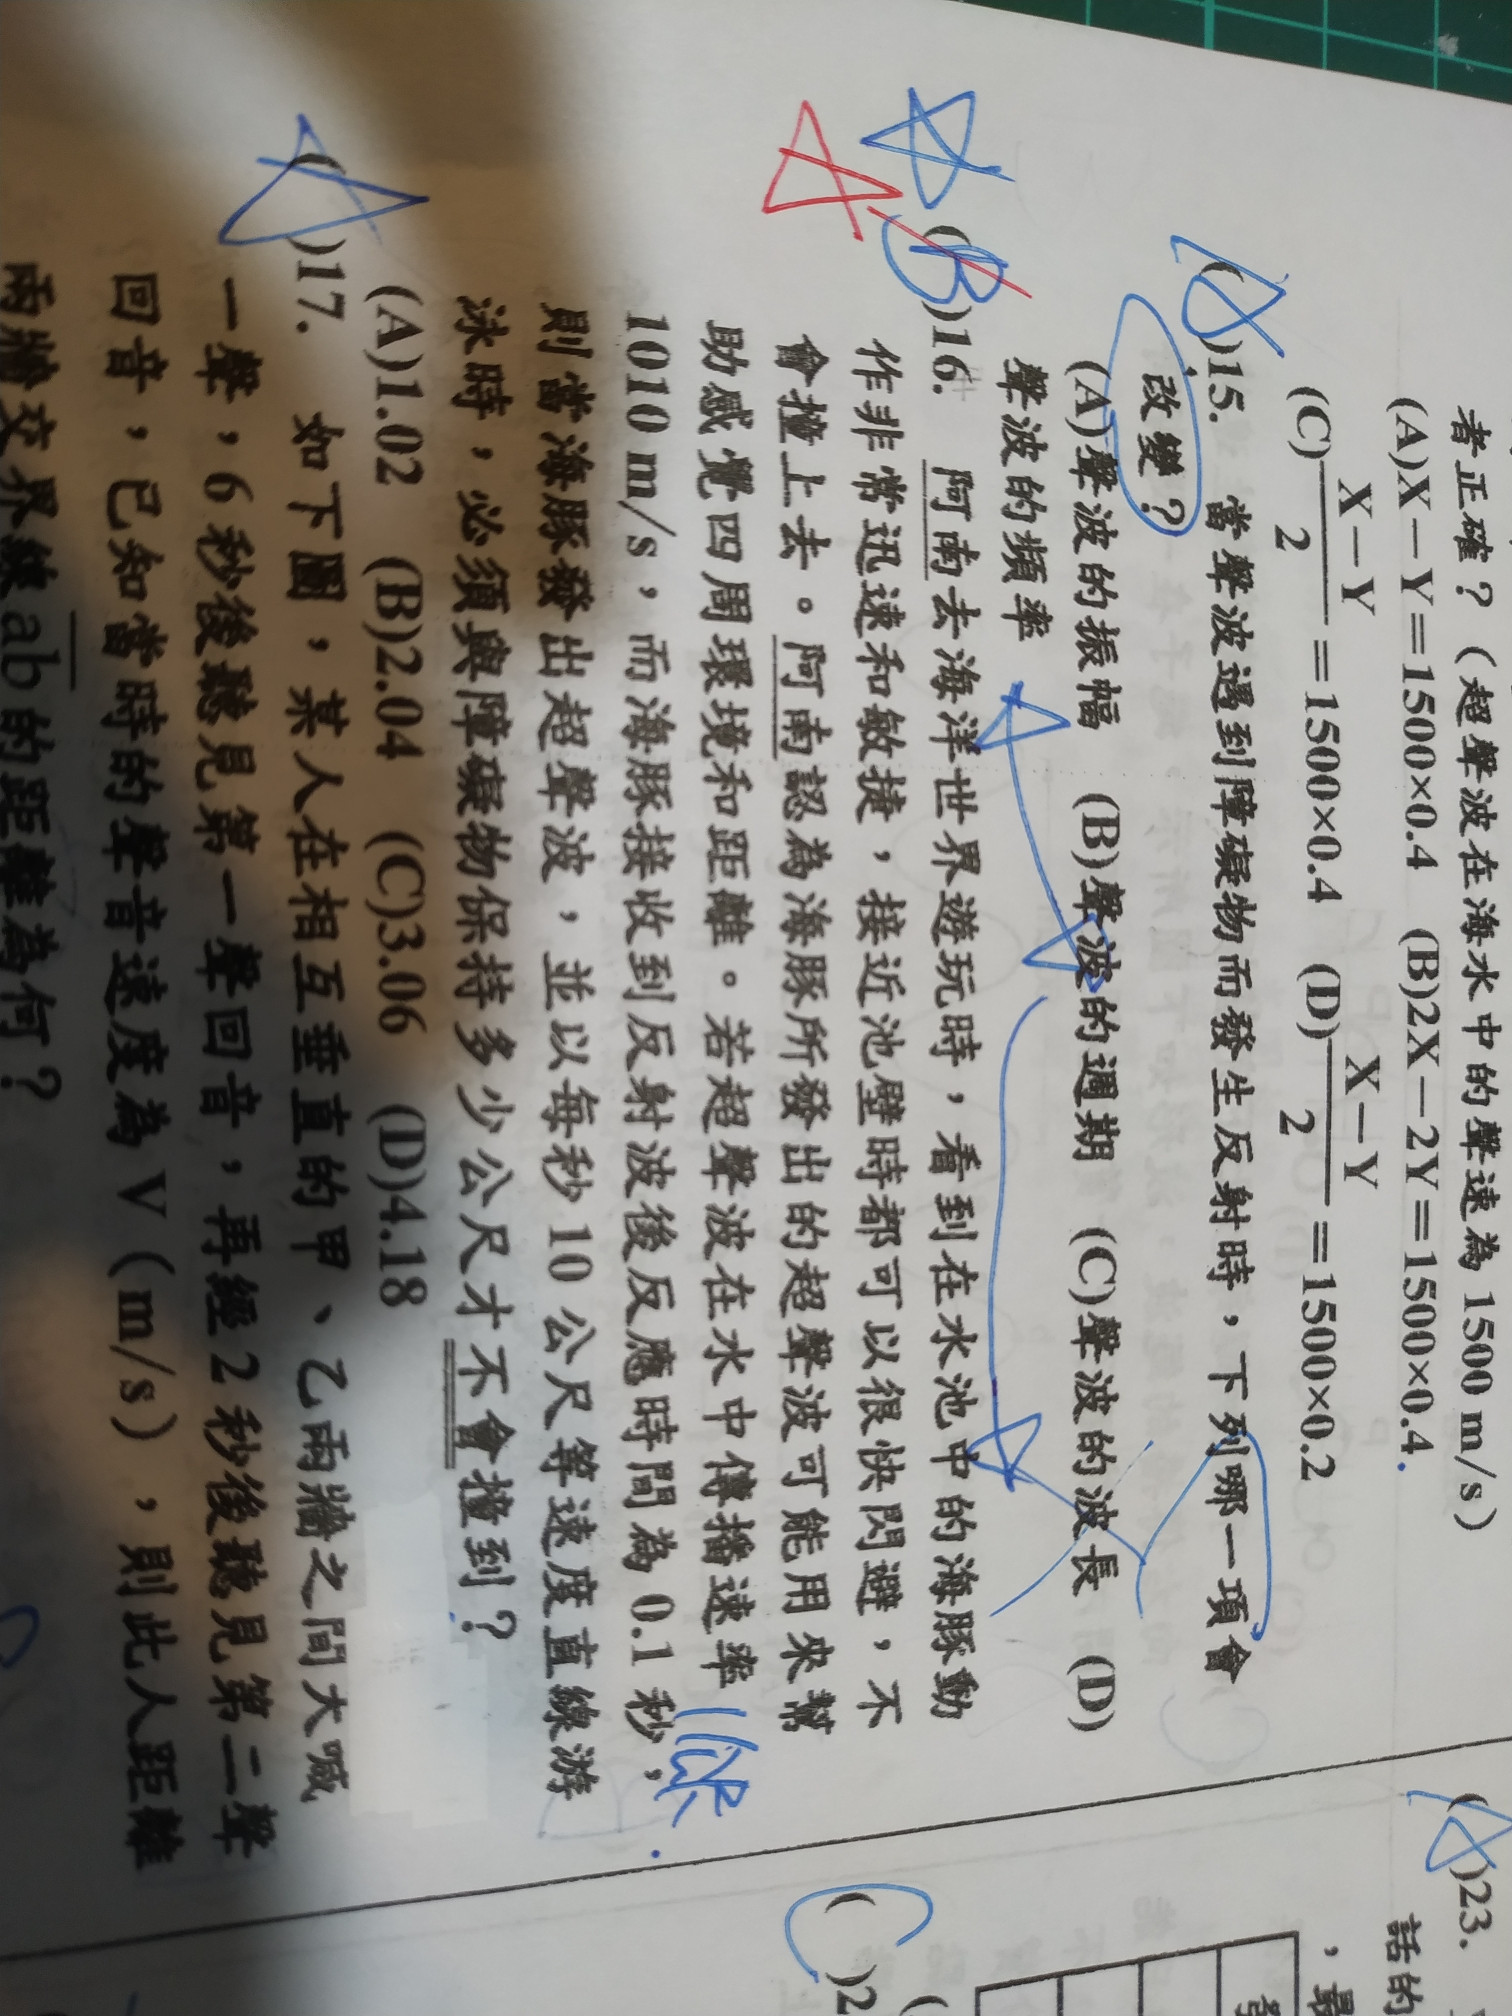 者正確？（超聲波在海水中的聲速為 1500 m/s）
(A)X－Y＝1500×0.4　(B)2X－2Y＝1500×0.4
(C)X－Y/2＝1500×0.4　(D)X－Y/2＝1500×0.2
(A)15. 當聲波遇到障礙物而發生反射時，下列哪一項會
改變？
(A)聲波的振幅　(B)聲波的週期　(C)聲波的波長　(D)
聲波的頻率
(B)16. 阿南去海洋世界遊玩時，看到在水池中的海豚動
作非常迅速和敏捷，接近池壁時都可以很快閃避，不
會撞上去。阿南認為海豚所發出的超聲波可能用來幫
助感覺四周環境和距離。若超聲波在水中傳播速率
1010 m/s，而海豚接收到反射波後反應時間為 0.1 秒，
則當海豚發出超聲波，並以每秒 10 公尺等速度直線游
泳時，必須與障礙物保持多少公尺才不會撞到？
(A)1.02　(B)2.04　(C)3.06　(D)4.18
( )17. 如下圖，某人在相互垂直的甲、乙兩牆之間大喊
一聲，6 秒後聽見第一聲回音，再經 2 秒後聽見第二聲
回音，已知當時的聲音速度為 V（m/s），則此人距離
兩牆交界線ab的距離為何？
)23.
話的
，最
(C)2